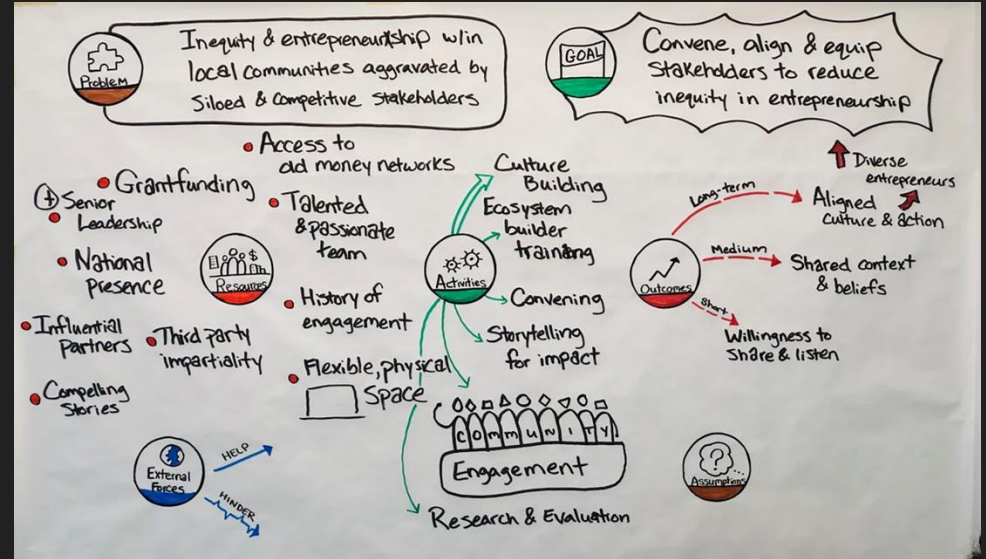 Problem
Inequity & entrepreneurship w/in
local communities aggravated by
Siloed & Competitive Stakeholders
GOAL
Convene, align & equip
Stakeholders to reduce
inequity in entrepreneurship
Resources
Access to
old money networks
Grantfunding
+ Senior
Leadership
Talented
& passionate
team
National
presence
History of
engagement
Influential
Partners
Third party
impartiality
Flexible, physical
Space
Compelling
Stories
Activities
Culture
Building
Ecosystem
builder
training
Convening
Storytelling
for impact
COMMUNITY
Engagement
Research & Evaluation
Outcomes
Long-term
Diverse
entrepreneurs
Aligned
culture & action
Medium
Shared context
& beliefs
Short
Willingness to
Share & listen
External
Forces
HELP
HINDER
?
Assumptions